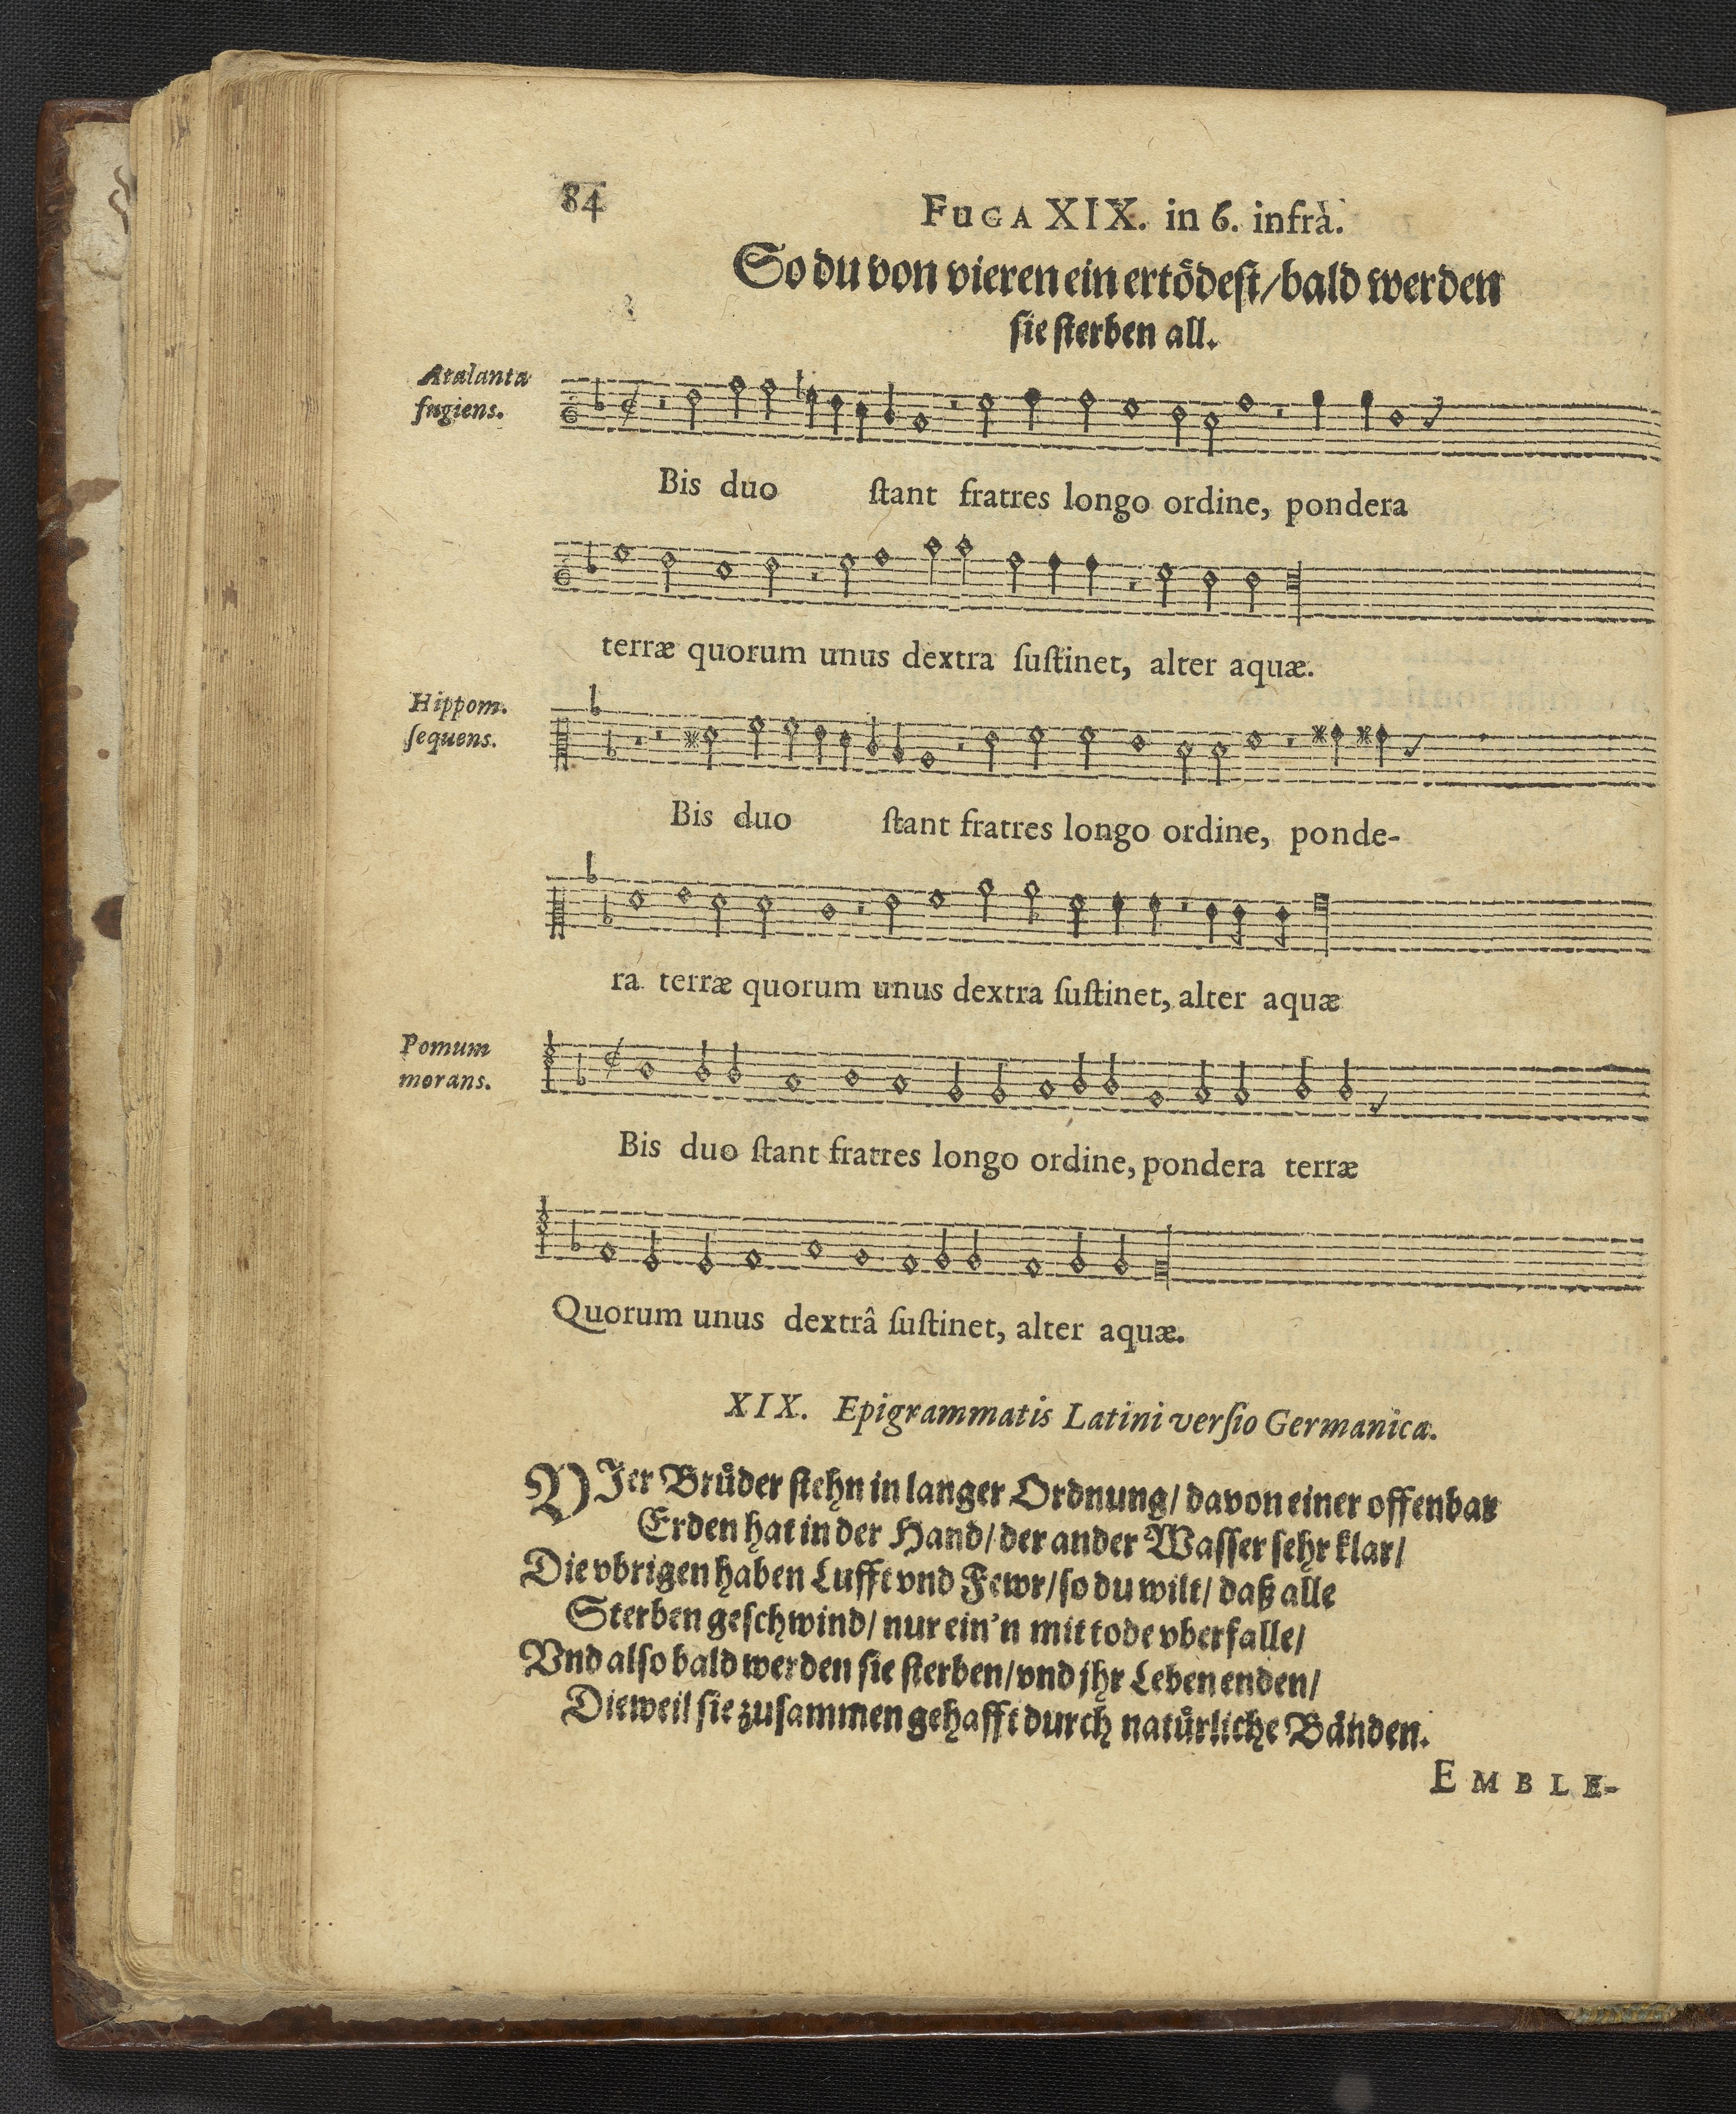 84
FUGA XIX. in 6. infrà.
So du von vieren ein ertödeſt/bald werden
ſie ſterben all.
Atalanta
fugiens.
Bis duo ſtant fratres longo ordine, pondera
terræ quorum unus dextra ſuſtinet, alter aquæ.
Hippom.
ſequens.
Bis duo ſtant fratres longo ordine, ponde-
ra terræ quorum unus dextra ſuſtinet, alter aquæ
Pomum
morans.
Bis duo ſtant fratres longo ordine, pondera terræ
Quorum unus dextrâ ſuſtinet, alter aquæ.
XIX. Epigrammatis Latini verſio Germanica.
VIer Bruͤder ſtehn in langer Ordnung/ davon einer offenbar
Erden hat in der Hand/ der ander Waſſer ſehr klar/
Die vbrigen haben Lufft vnd Fewr/ ſo du wilt/ daß alle
Sterben geſchwind/ nur ein'n mit tode vberfalle/
Vnd alſo bald werden ſie ſterben/ vnd jhr Leben enden/
Dieweil ſie zuſammen gehafft durch natuͤrliche Baͤnden.
EMBLE-